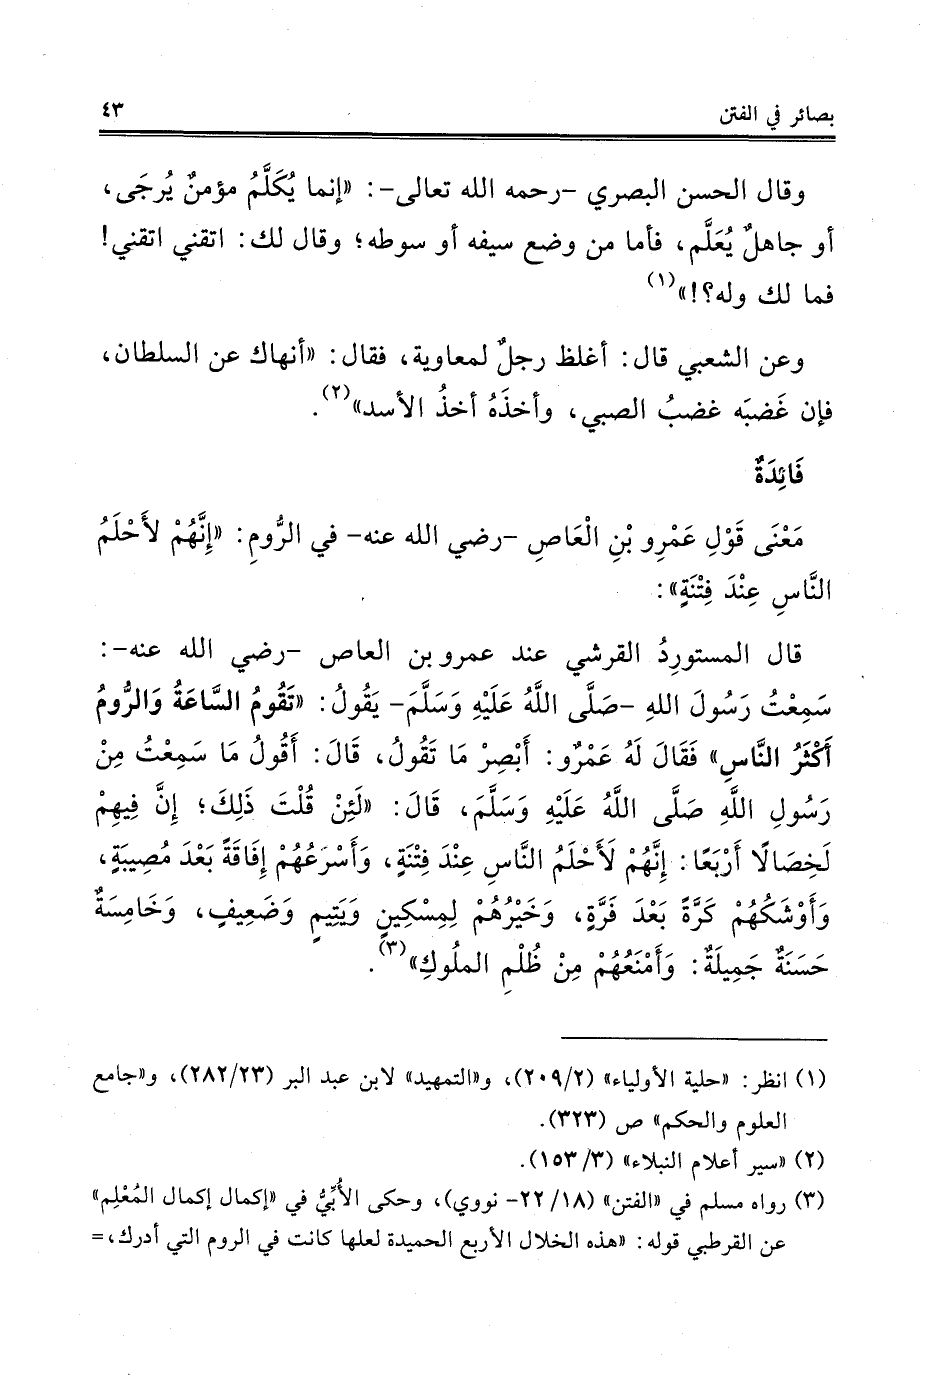 بصائر في الفتن ٤٣
وقال الحسن البصري -رحمه الله تعالى-: «إنما يُكَلَّمُ مؤمنٌ يُرجَى،
أو جاهلٌ يُعَلَّم، فأما من وضع سيفه أو سوطه؛ وقال لك: اتقني اتقني!
فما لك وله؟!»(١)
وعن الشعبي قال: أغلظ رجلٌ لمعاوية، فقال: «أنهاك عن السلطان،
فإن غَضبَه غضبُ الصبي، وأخذَهُ أخذُ الأسد»(٢).
فَائِدَةٌ
مَعْنَى قَوْلِ عَمْرِو بْنِ الْعَاصِ -رضي الله عنه- في الرُّومِ: «إِنَّهُمْ لأَحْلَمُ
النَّاسِ عِنْدَ فِتْنَةٍ»:
قال المستوردُ القرشي عند عمرو بن العاص -رضي الله عنه-:
سَمِعْتُ رَسُولَ اللهِ -صَلَّى اللَّهُ عَلَيْهِ وَسَلَّمَ- يَقُولُ: «تَقُومُ السَّاعَةُ وَالرُّومُ
أَكْثَرُ النَّاسِ» فَقَالَ لَهُ عَمْرٌو: أَبْصِرْ مَا تَقُولُ، قَالَ: أَقُولُ مَا سَمِعْتُ مِنْ
رَسُولِ اللَّهِ صَلَّى اللَّهُ عَلَيْهِ وَسَلَّمَ، قَالَ: «لَئِنْ قُلْتَ ذَلِكَ؛ إِنَّ فِيهِمْ
لَخِصَالًا أَرْبَعًا: إِنَّهُمْ لَأَحْلَمُ النَّاسِ عِنْدَ فِتْنَةٍ، وَأَسْرَعُهُمْ إِفَاقَةً بَعْدَ مُصِيبَةٍ،
وَأَوْشَكُهُمْ كَرَّةً بَعْدَ فَرَّةٍ، وَخَيْرُهُمْ لِمِسْكِينٍ وَيَتِيمٍ وَضَعِيفٍ، وَخَامِسَةٌ
حَسَنَةٌ جَمِيلَةٌ: وَأَمْنَعُهُمْ مِنْ ظُلْمِ الملُوكِ»(٣).
(١) انظر: «حلية الأولياء» (٢٠٩/٢)، و«التمهيد» لابن عبد البر (٢٨٢/٢٣)، و«جامع
العلوم والحكم» ص (٣٢٣).
(٢) «سير أعلام النبلاء» (٣/ ١٥٣).
(٣) رواه مسلم في «الفتن» (١٨/ ٢٢- نووي)، وحكى الأُبِّيُّ في «إكمال إكمال المُعْلِم»
عن القرطبي قوله: «هذه الخلال الأربع الحميدة لعلها كانت في الروم التي أدرك، =